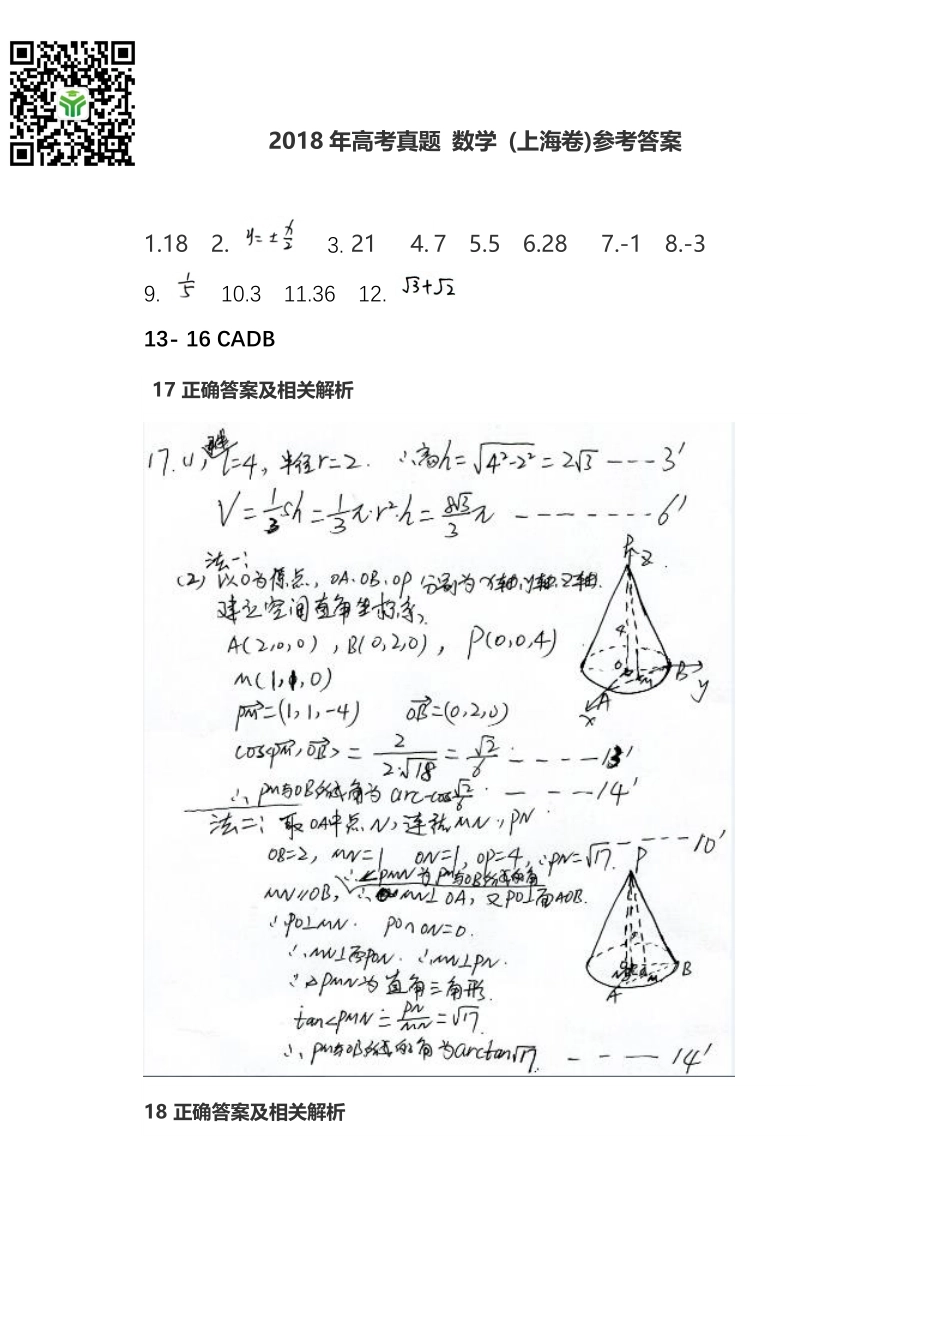 2018 年高考真题 数学 (上海卷)参考答案
1.18 2. y=±x/2 3. 21 4. 7 5.5 6.28 7.-1 8.-3
9. 1/5 10.3 11.36 12. √3+√2
13- 16 CADB
17 正确答案及相关解析
17. (1) l=4, 半径r=2. ∴高h=√(4²-2²)=2√3 ---3'
V=1/3 sh=1/3 π·r²·h=8√3/3 π --------6'
法一:
(2) 以O为原点, OA、OB、OP 分别为x轴,y轴,z轴.
建立空间直角坐标系,
A(2,0,0), B(0,2,0), P(0,0,4)
M(1,1,0)
PM=(1,1,-4) OB=(0,2,0)
cos<PM,OB>=2/(2·√18)=√2/6 ----13'
∴PM与OB所成角为arc cos√2/6. ---14'
法二: 取OA中点N, 连结MN, PN
OB=2, MN=1 ON=1, OP=4, ∴PN=√17. ----10'
∴∠PMN为PM与OB所成的角
MN∥OB, ∴MN⊥OA, 又PO⊥面AOB.
∴PO⊥MN. PO∩ON=O.
∴MN⊥面PON. ∴MN⊥PN.
∴△PMN为直角三角形.
tan∠PMN=PN/MN=√17.
∴PM与OB所成的角为arctan√17. ---14'
P
z
4
O
M
B
y
A
x
P
N
M
B
A
18 正确答案及相关解析